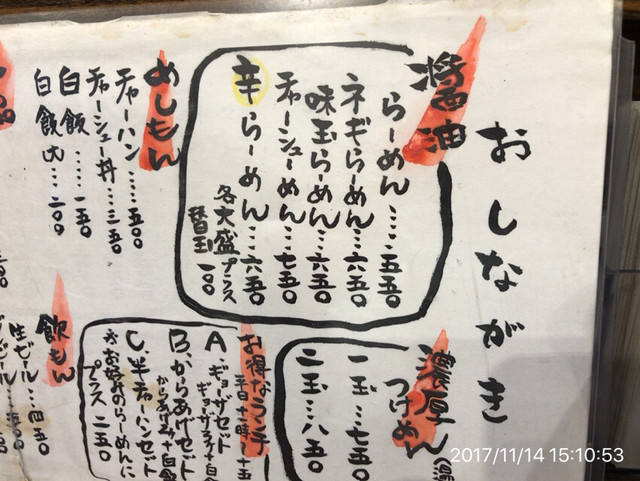 おしながき
醤油
らーめん……五五〇
ネギらーめん…六五〇
味玉らーめん…六五〇
チャーシューめん…七五〇
辛らーめん…六五〇
各大盛プラス
替玉 一〇〇
めしもん
チャーハン……五〇〇
チャーシュー丼…三五〇
白飯……一五〇
白飯大…二〇〇
濃厚
つけめん
一玉…七五〇
二玉…八五〇
お得なランチ
平日十時
A、ギョーザセット
B、からあげセット
C、半チャーハンセット
※お好みのらーめんに
プラス 二五〇
飲もん
生ビール…四五〇
2017/11/14 15:10:53